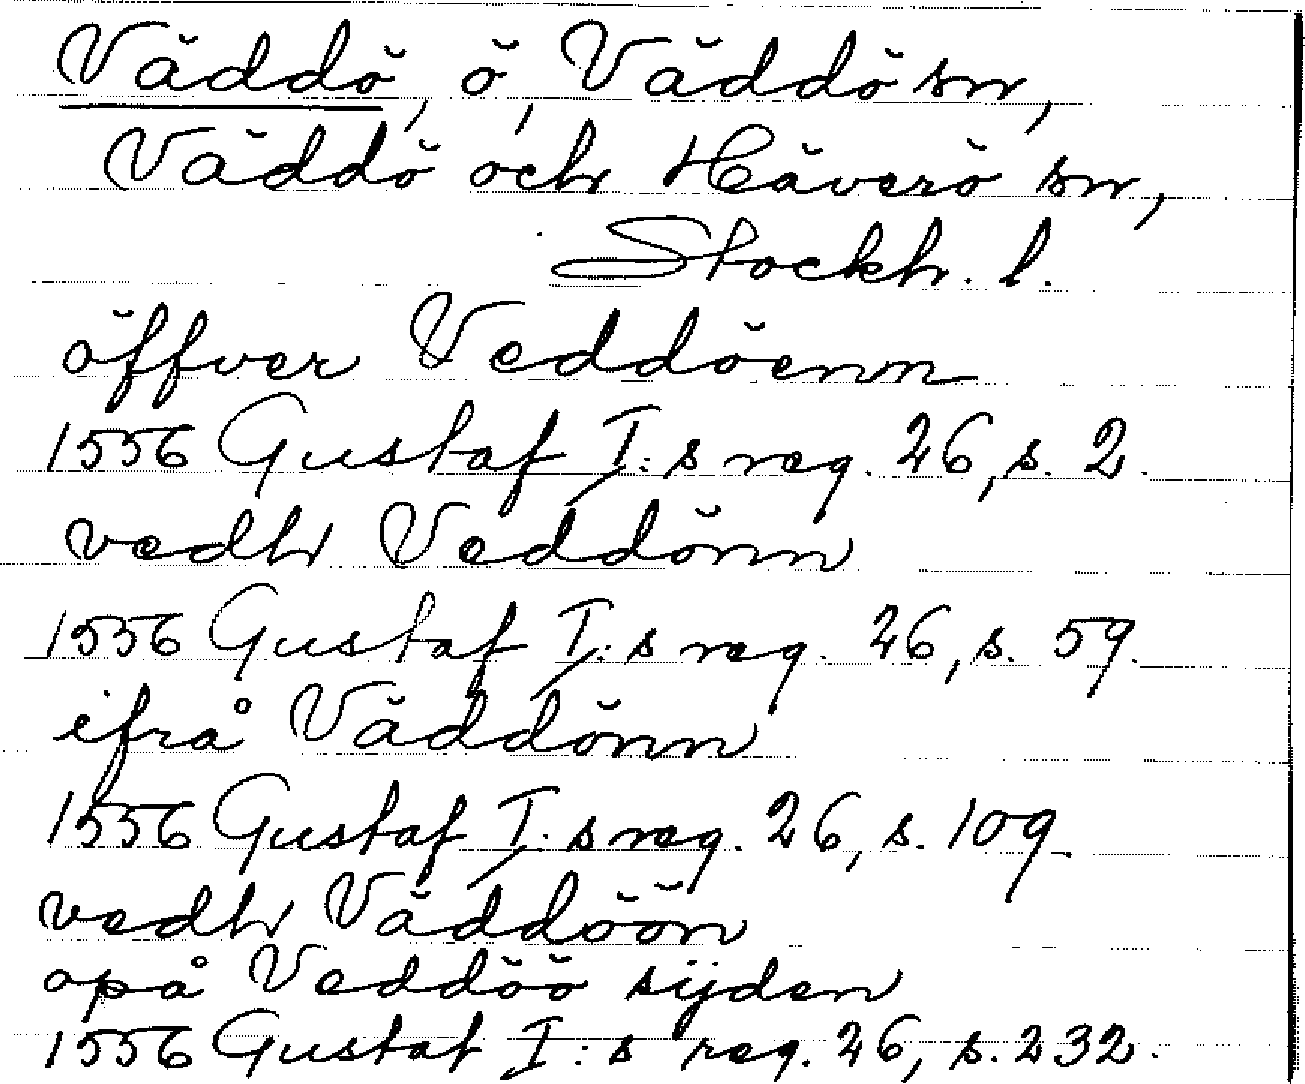 Väddö, ö, Väddö sn,
Väddö och Häverö sn,
Stockh. l.
öffver Veddöenn
1556 Gustaf I:s reg. 26, s. 2.
vedh Veddönn
1556 Gustaf I:s reg. 26, s. 59.
ifrå Väddönn
1556 Gustaf I:s reg. 26, s. 109.
vedh Väddöön
opå Veddöö sijden
1556 Gustaf I:s reg. 26, s. 232.